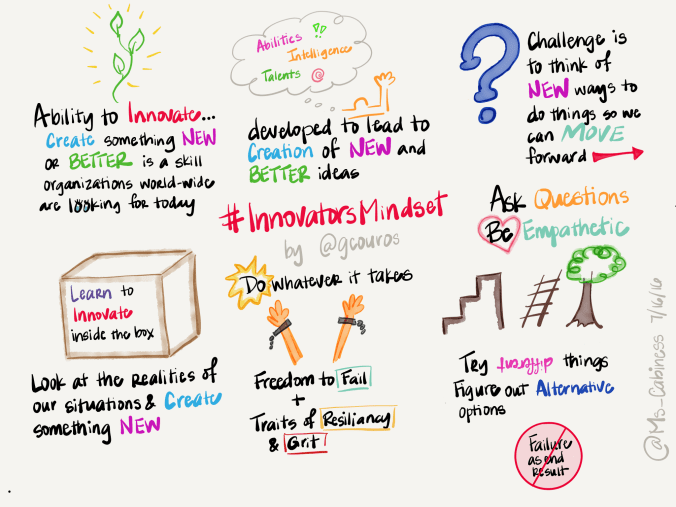 Ability to Innovate...
Create something NEW
or BETTER is a skill
organizations world-wide
are looking for today
Abilities !?
Intelligence
Talents
developed to lead to
Creation of NEW and
BETTER ideas
?
Challenge is
to think of
NEW ways to
do things so we
can MOVE
forward
#InnovatorsMindset
by @gcouros
Ask Questions
Be Empathetic
Learn to
Innovate
inside the box
Look at the realities of
our situations & Create
something NEW
Do whatever it takes
Freedom to Fail
+
Traits of Resiliancy
& Grit
Try different things
Figure out Alternative
options
Failure
as end
result
@Ms_Cabiness 7/16/16